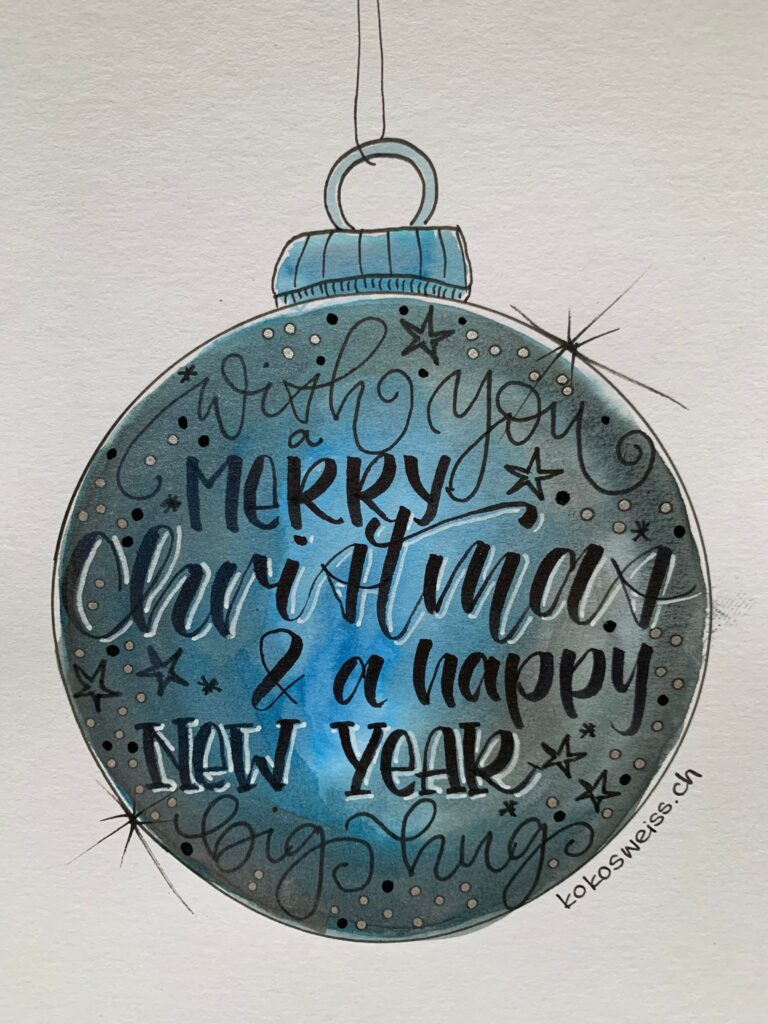 wish you
a
MERRY
Christmas
& a happy
NEW YEAR
big hug
kokosweiss.ch